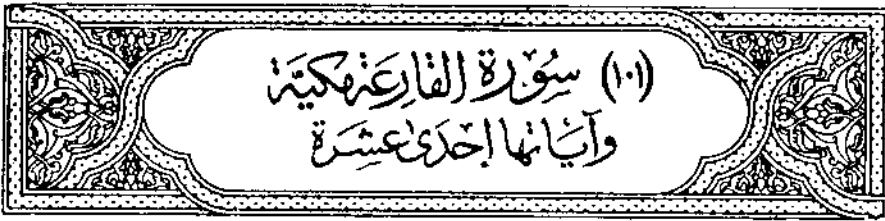 (١٠١) سُورَة القَارِعَة مَكيَّة
وَآيَاتُها إِحْدَىٰ عَشْرَة